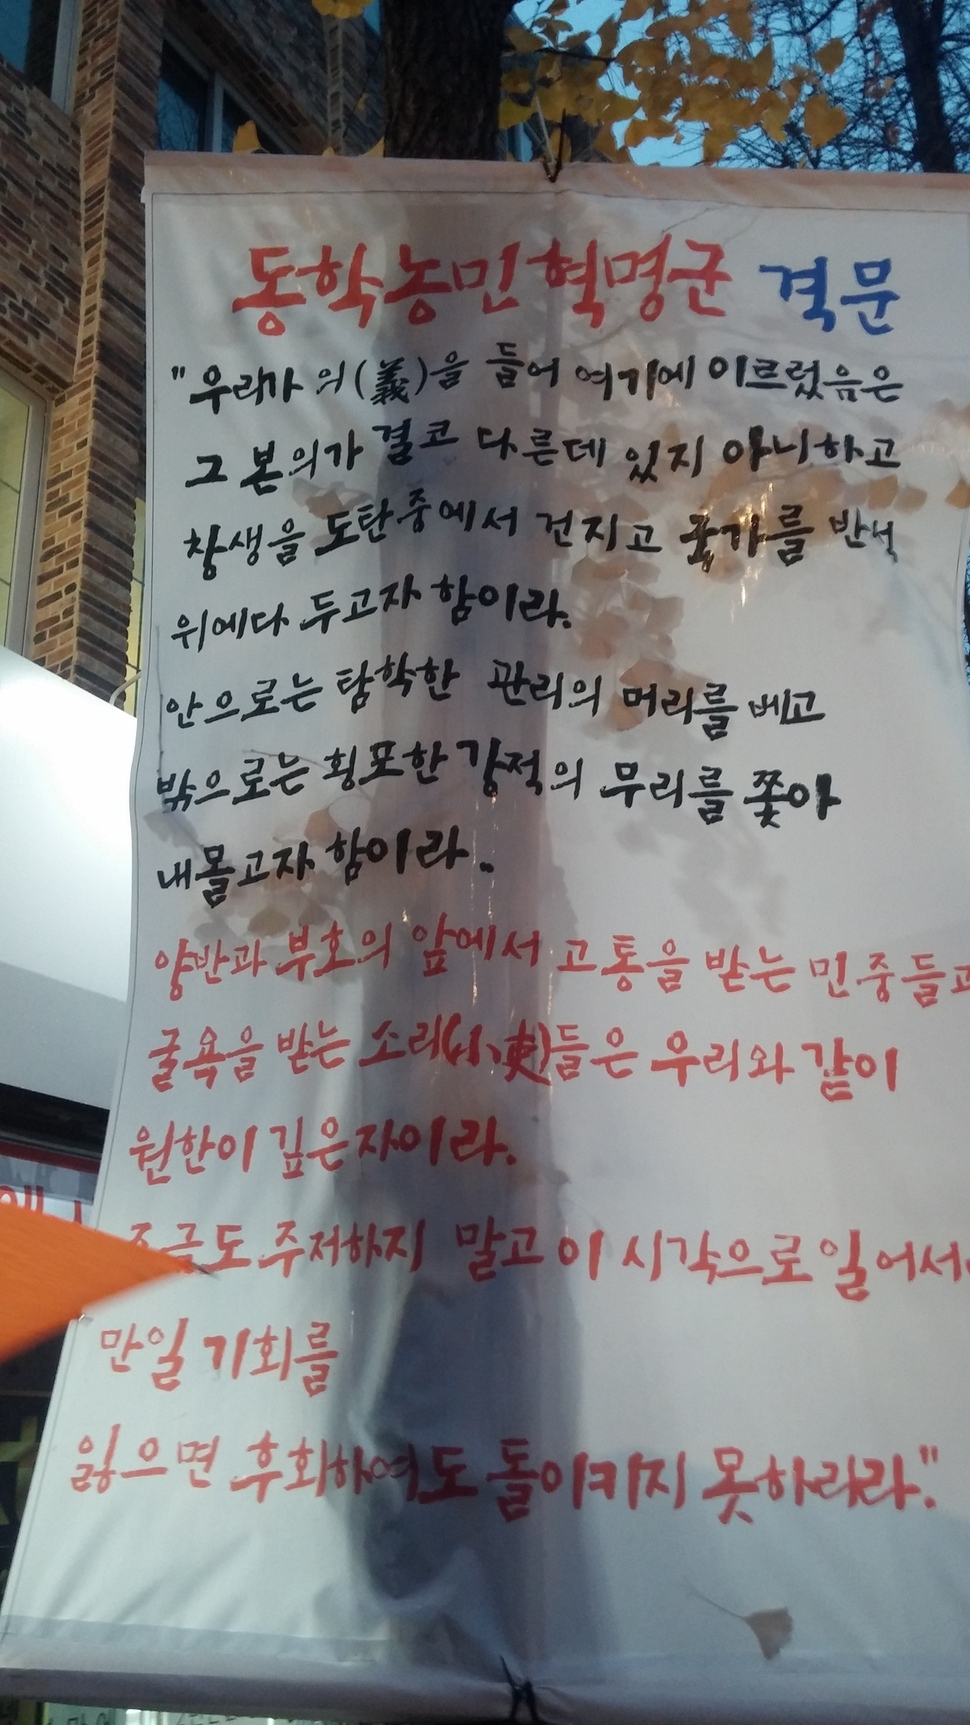 동학농민혁명군 격문
"우리가 의(義)을 들어 여기에 이르렀음은
그 본의가 결코 다른데 있지 아니하고
창생을 도탄중에서 건지고 국가를 반석
위에다 두고자 함이라.
안으로는 탐학한 관리의 머리를 베고
밖으로는 횡포한 강적의 무리를 쫓아
내몰고자 함이라..
양반과 부호의 앞에서 고통을 받는 민중들과
굴욕을 받는 소리(小吏)들은 우리와 같이
원한이 깊은자이라.
조금도 주저하지 말고 이 시각으로 일어서라
만일 기회를
잃으면 후회하여도 돌이키지 못하리라."